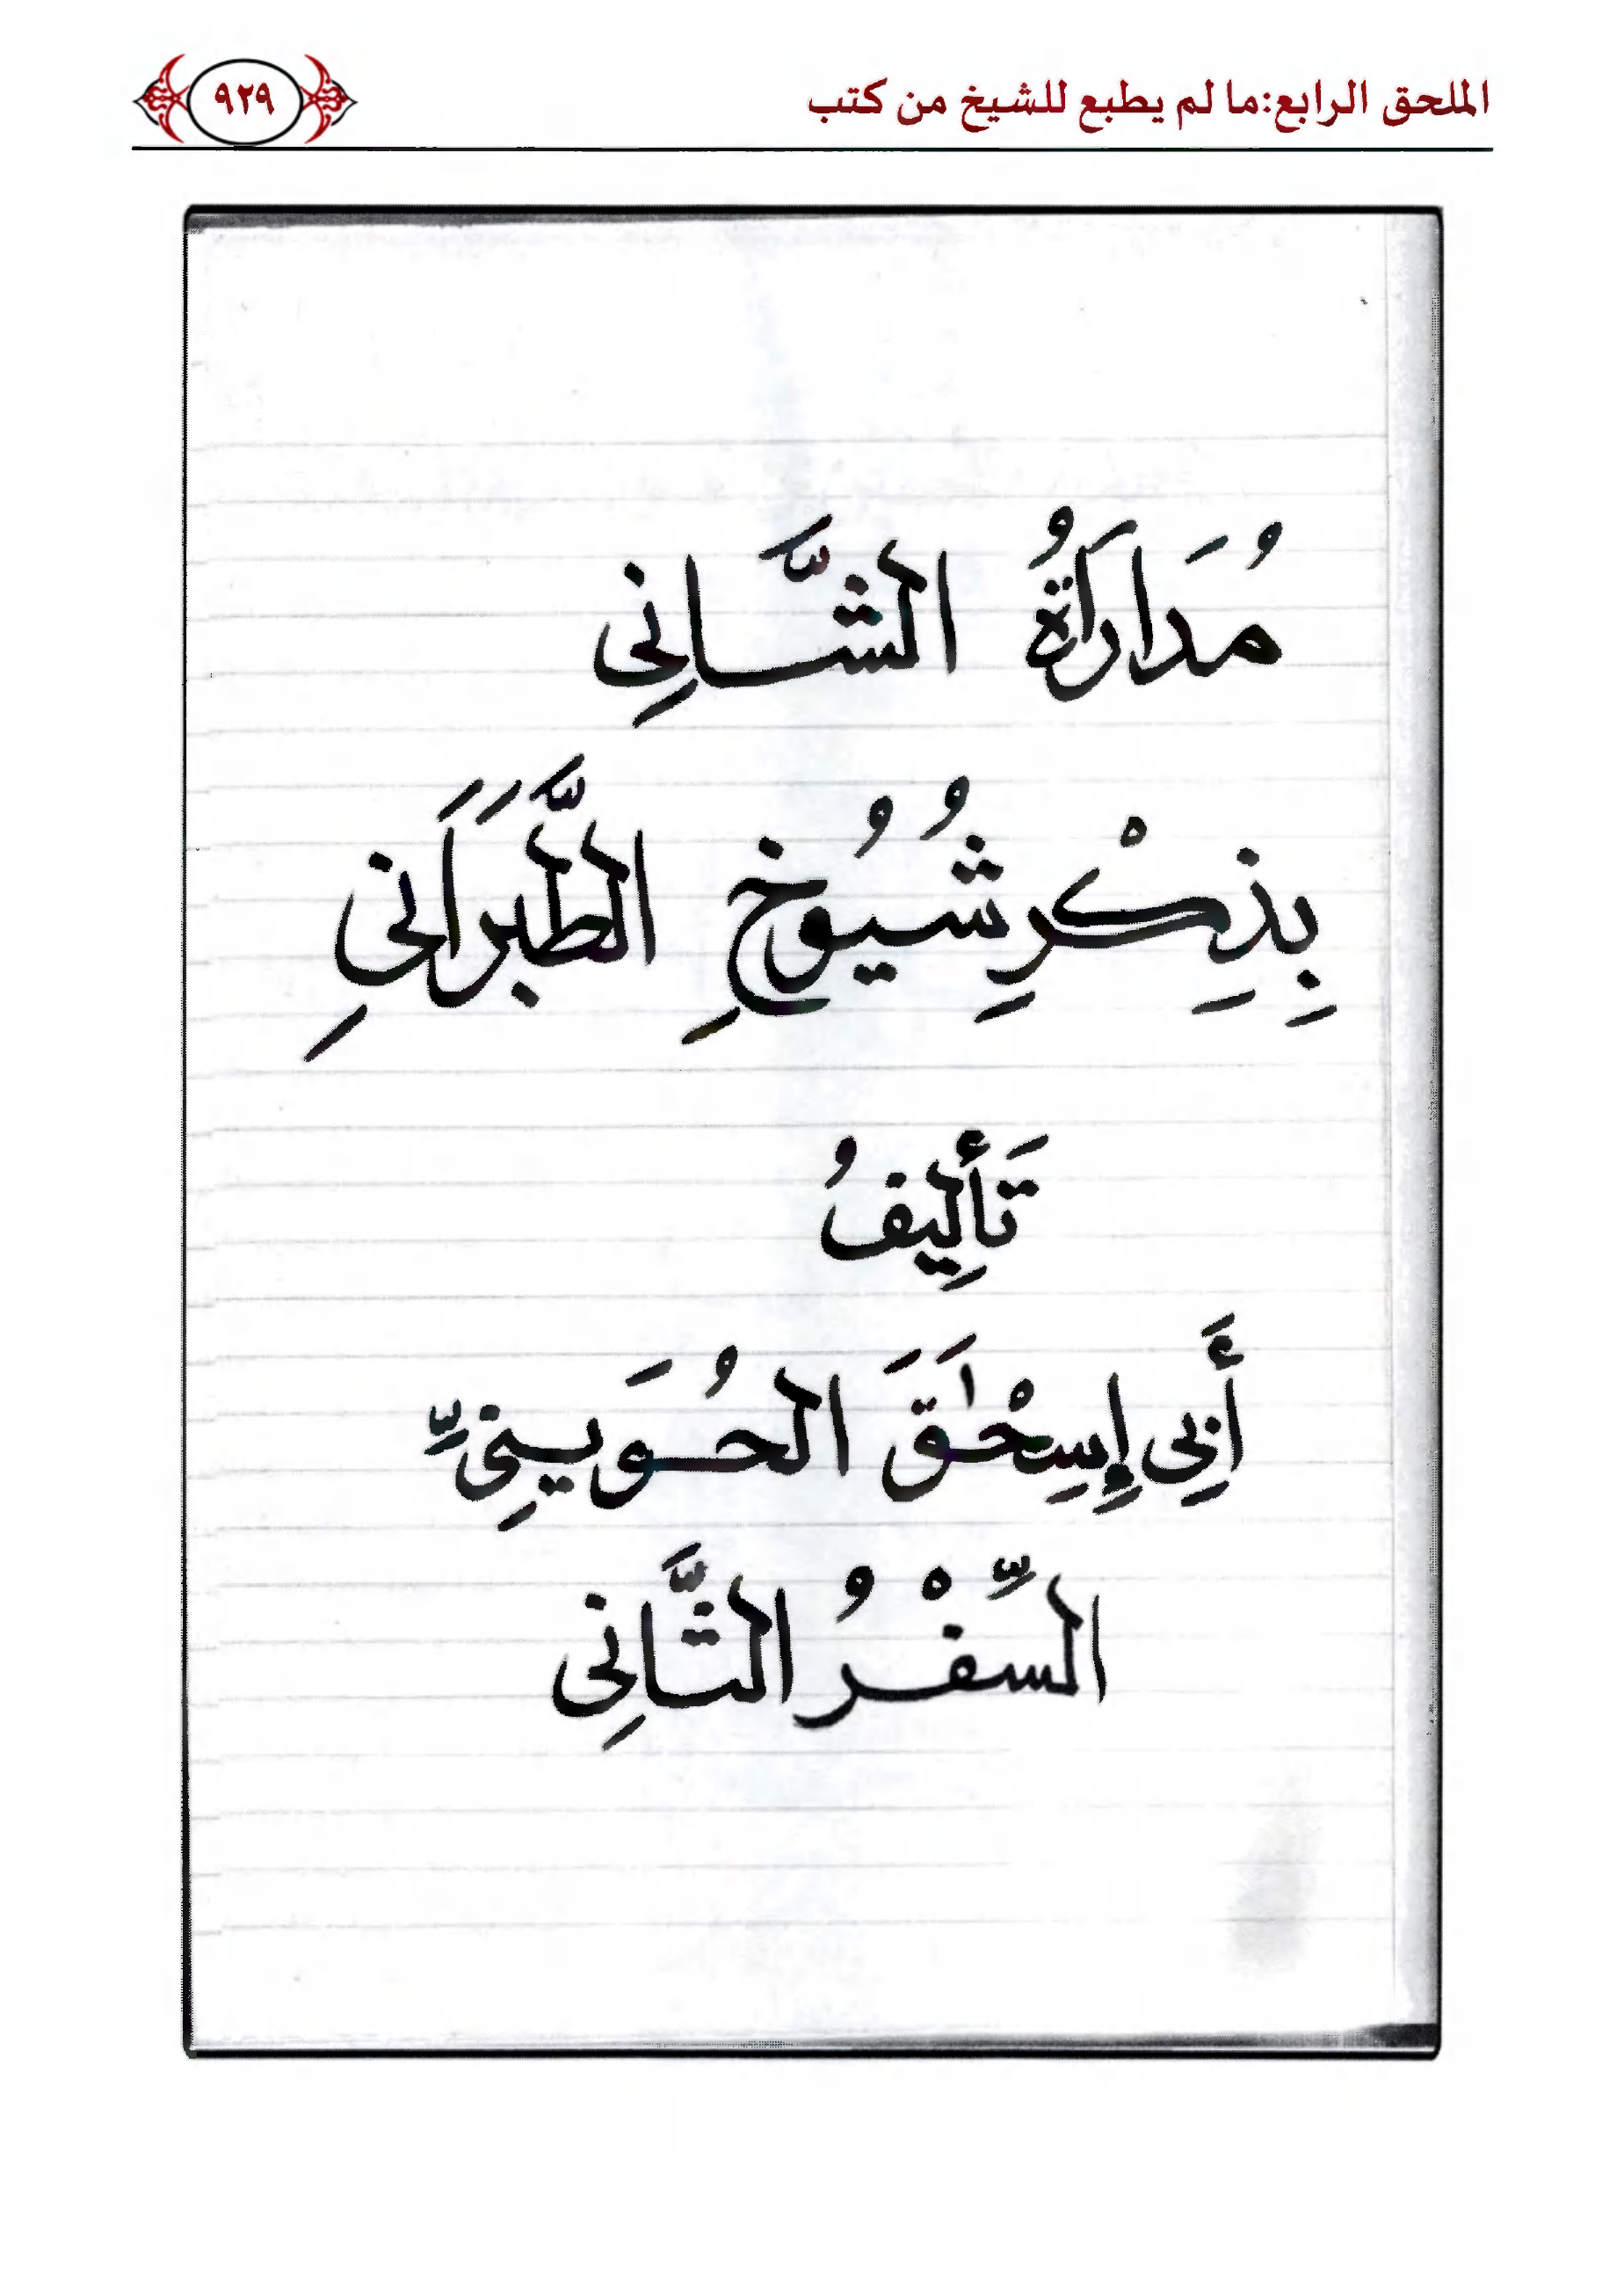 الملحق الرابع:ما لم يطبع للشيخ من كتب
٩٢٩
مُدَارَاةُ الشَّانِى
بِذِكْرِ شُيُوخِ الطَّبَرَانِى
تَأْلِيفُ
أَبِى إِسْحٰقَ الحُوَينِىِّ
السِّفْرُ الثَّانِى